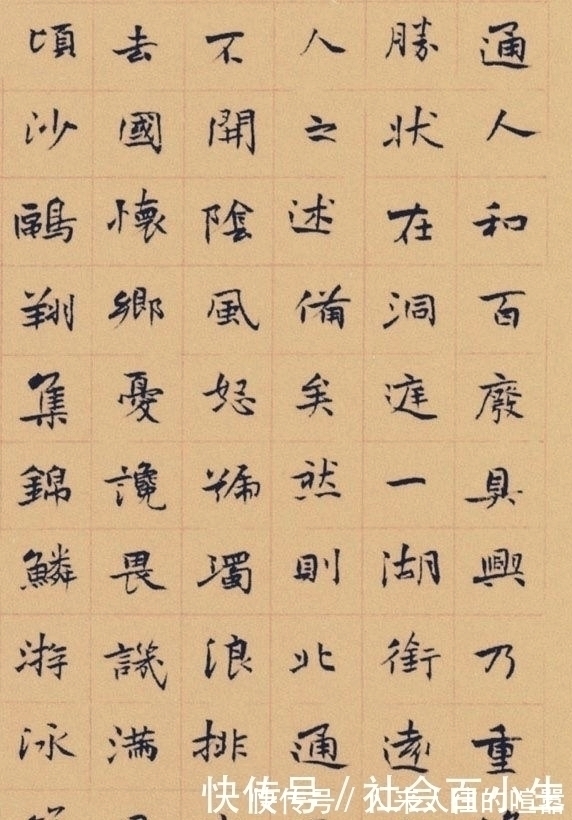 通人和百廢具興乃重
勝狀在洞庭一湖銜遠
人之述備矣然則北通
不開陰風怒號濁浪排
去國懷鄉憂讒畏譏滿
頃沙鷗翔集錦鱗游泳
快传号//社会百小生